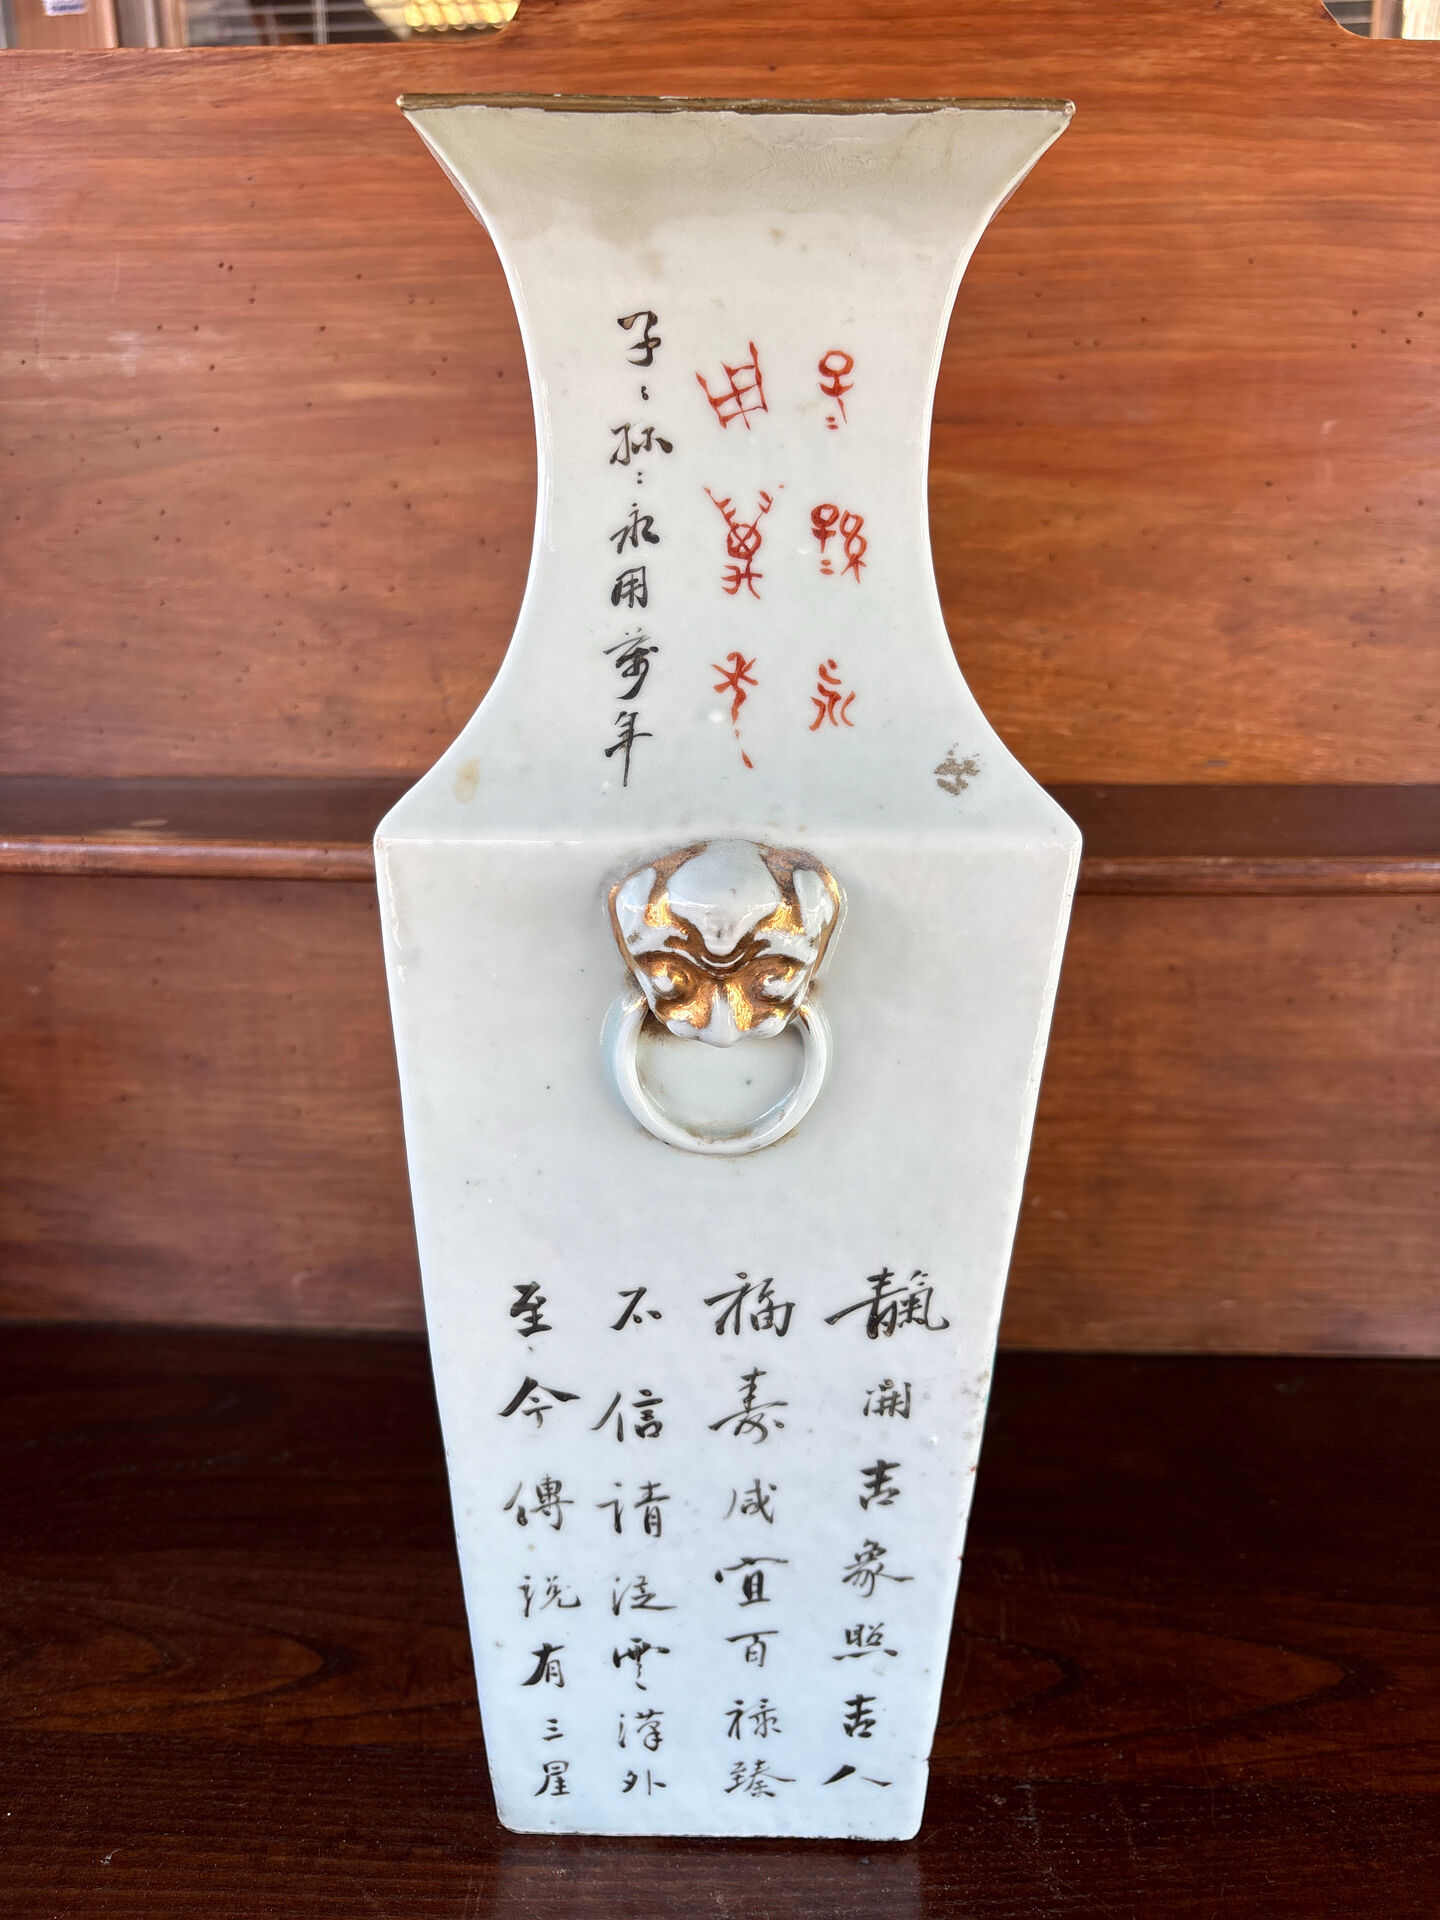 子〻孫〻永
用萬年
子〻孫〻永用萬年
靝開吉象照吉人
福壽咸宜百祿臻
不信請從雲漢外
至今傳說有三星